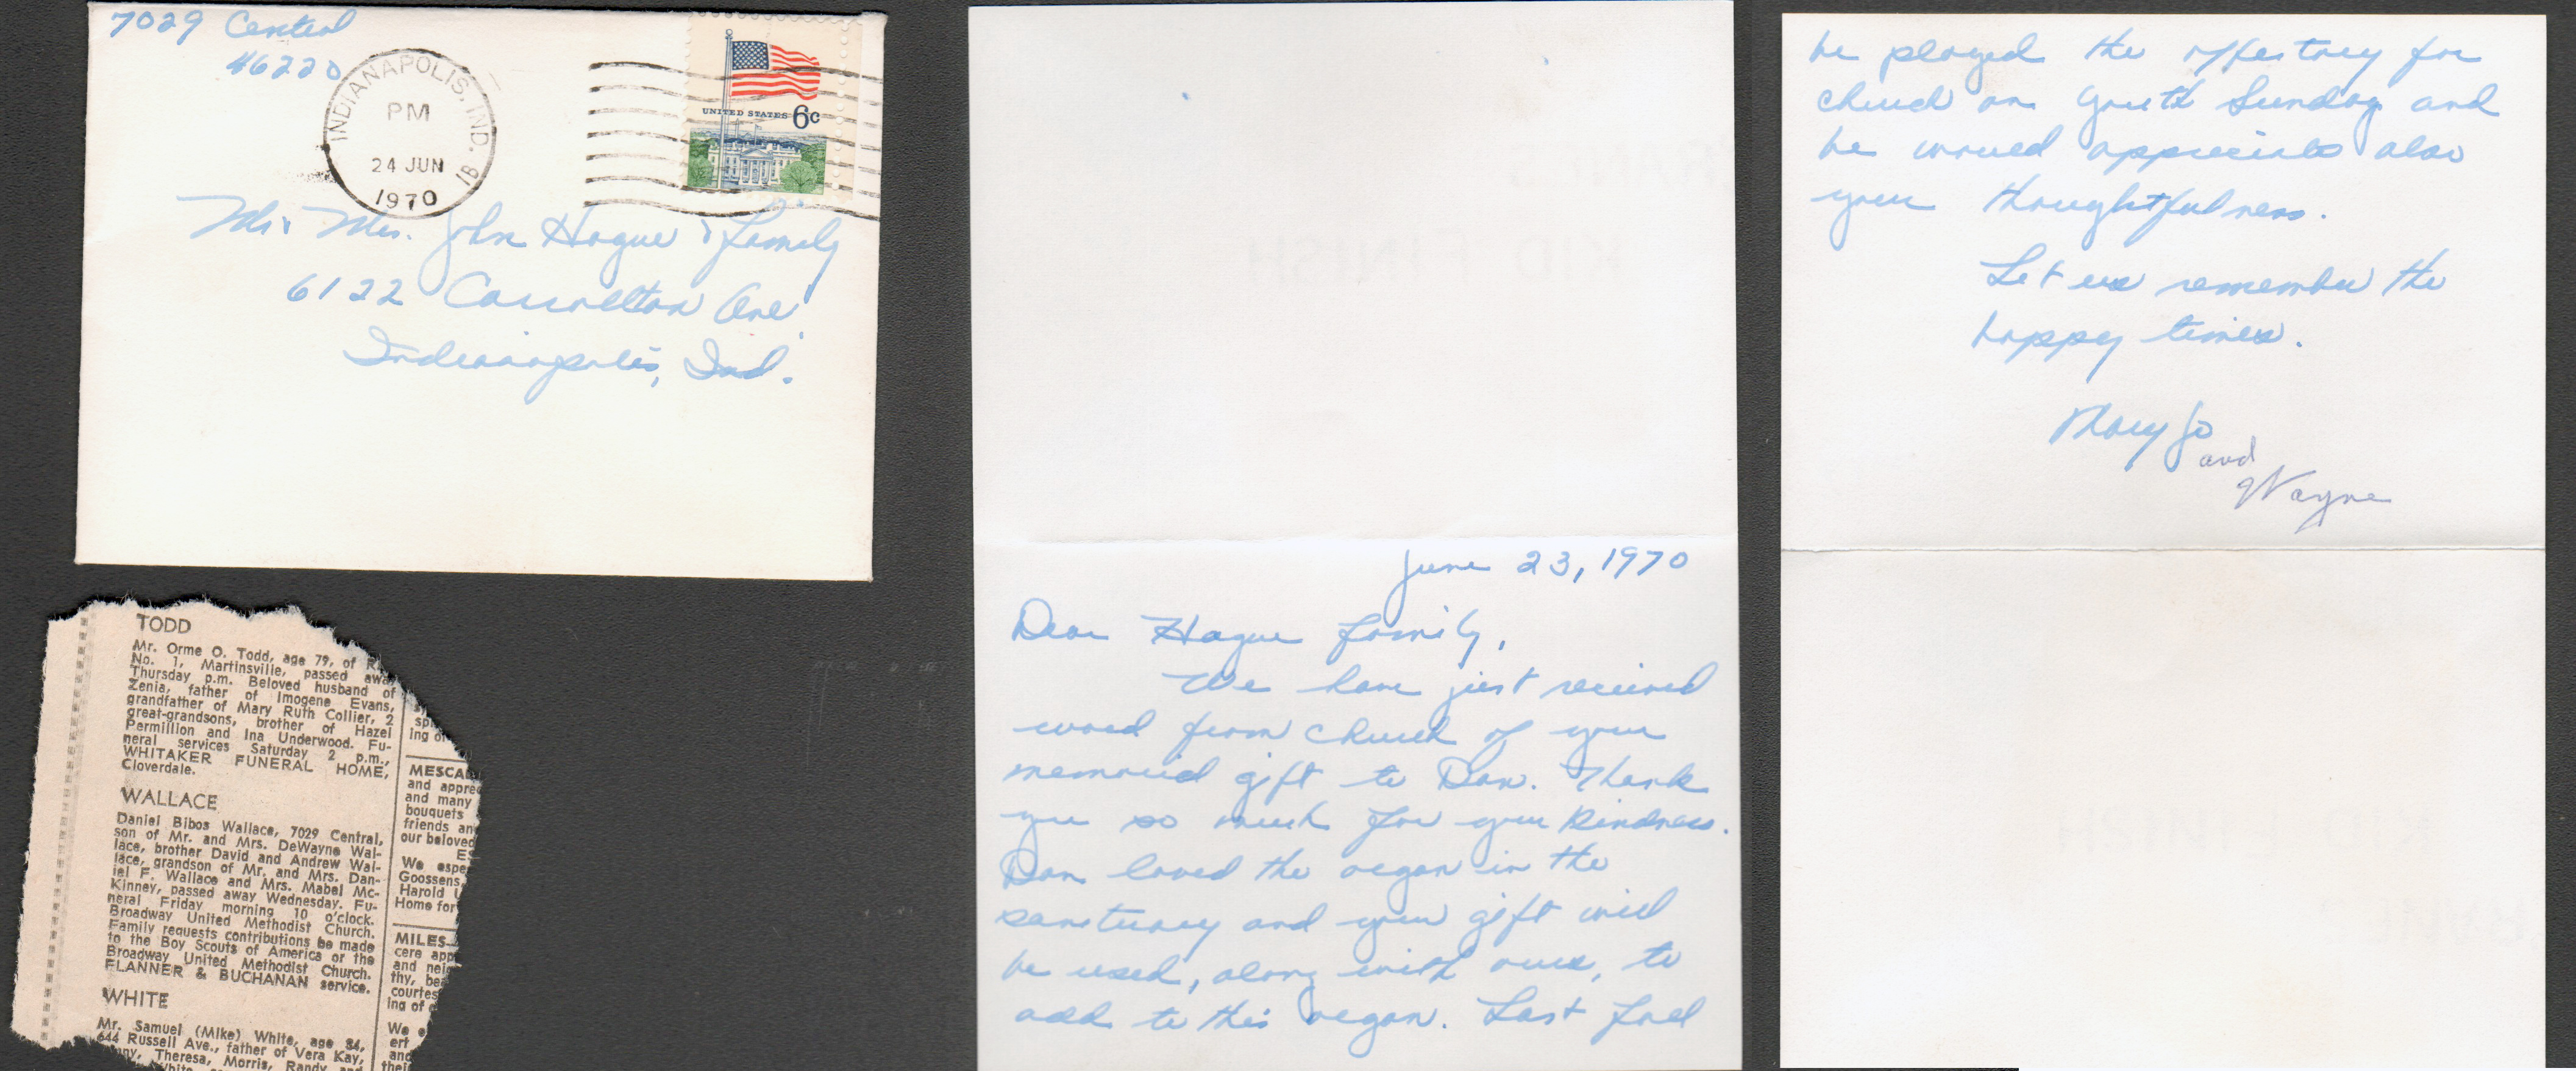 7029 Central
46220
INDIANAPOLIS, IND. 18
PM
24 JUN
1970
UNITED STATES 6c
Mr. Mrs. John Hague & family
6122 Carrollton Ave.
Indianapolis, Ind.
TODD
Mr. Orme O. Todd, age 79, of R.
No. 1, Martinsville, passed away
Thursday p.m. Beloved husband of
Zenia, father of Imogene Evans,
grandfather of Mary Ruth Collier, 2
great-grandsons, brother of Hazel
Permillion and Ina Underwood. Fu-
neral services Saturday 2 p.m.,
WHITAKER FUNERAL HOME,
Cloverdale.
WALLACE
Daniel Bibos Wallace, 7029 Central,
son of Mr. and Mrs. DeWayne Wal-
lace, brother David and Andrew Wal-
lace, grandson of Mr. and Mrs. Dan-
iel F. Wallace and Mrs. Mabel Mc-
Kinney, passed away Wednesday. Fu-
neral Friday morning 10 o'clock.
Broadway United Methodist Church.
Family requests contributions be made
to the Boy Scouts of America or the
Broadway United Methodist Church.
FLANNER & BUCHANAN service.
WHITE
Mr. Samuel (Mike) White, age 84,
644 Russell Ave., father of Vera Kay,
Theresa, Morris, Randy and
ing of
MESCA
and appre
and many
bouquets
friends an
our beloved
We espe
Goossens,
Harold
Home for
MILES—
cere app
and neig
thy, bea
courtes
ing of
We
ert
and
thei
June 23, 1970
Dear Hague family,
We have just received
word from church of your
memorial gift to Dan. Thank
you so much for your kindness.
Dan loved the organ in the
sanctuary and your gift will
be used, along with ours, to
add to this organ. Last fall
he played the offertory for
church on Youth Sunday and
he would appreciate also
your thoughtfulness.
Let us remember the
happy times.
Mary Jo
and
Wayne
KID FINISH